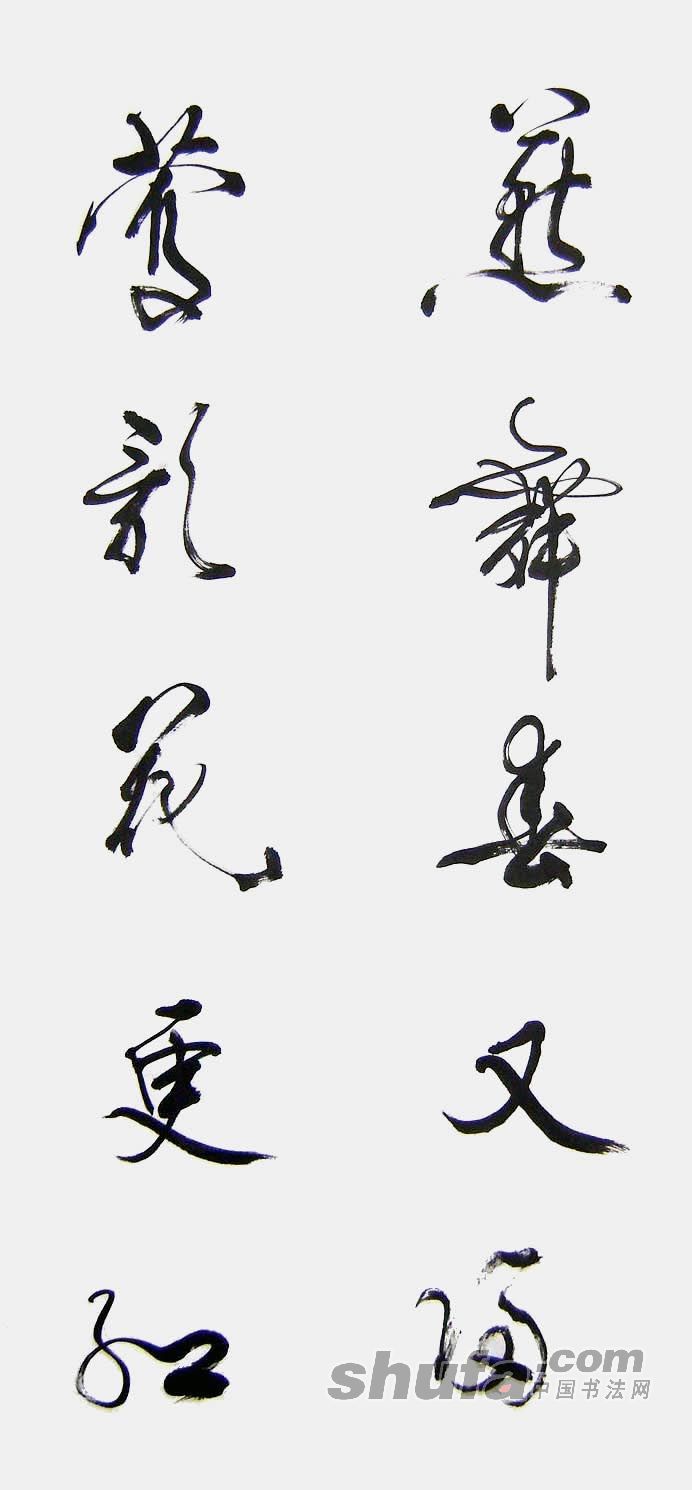 燕舞春又归
莺歌花更红
shufa.com
中国书法网